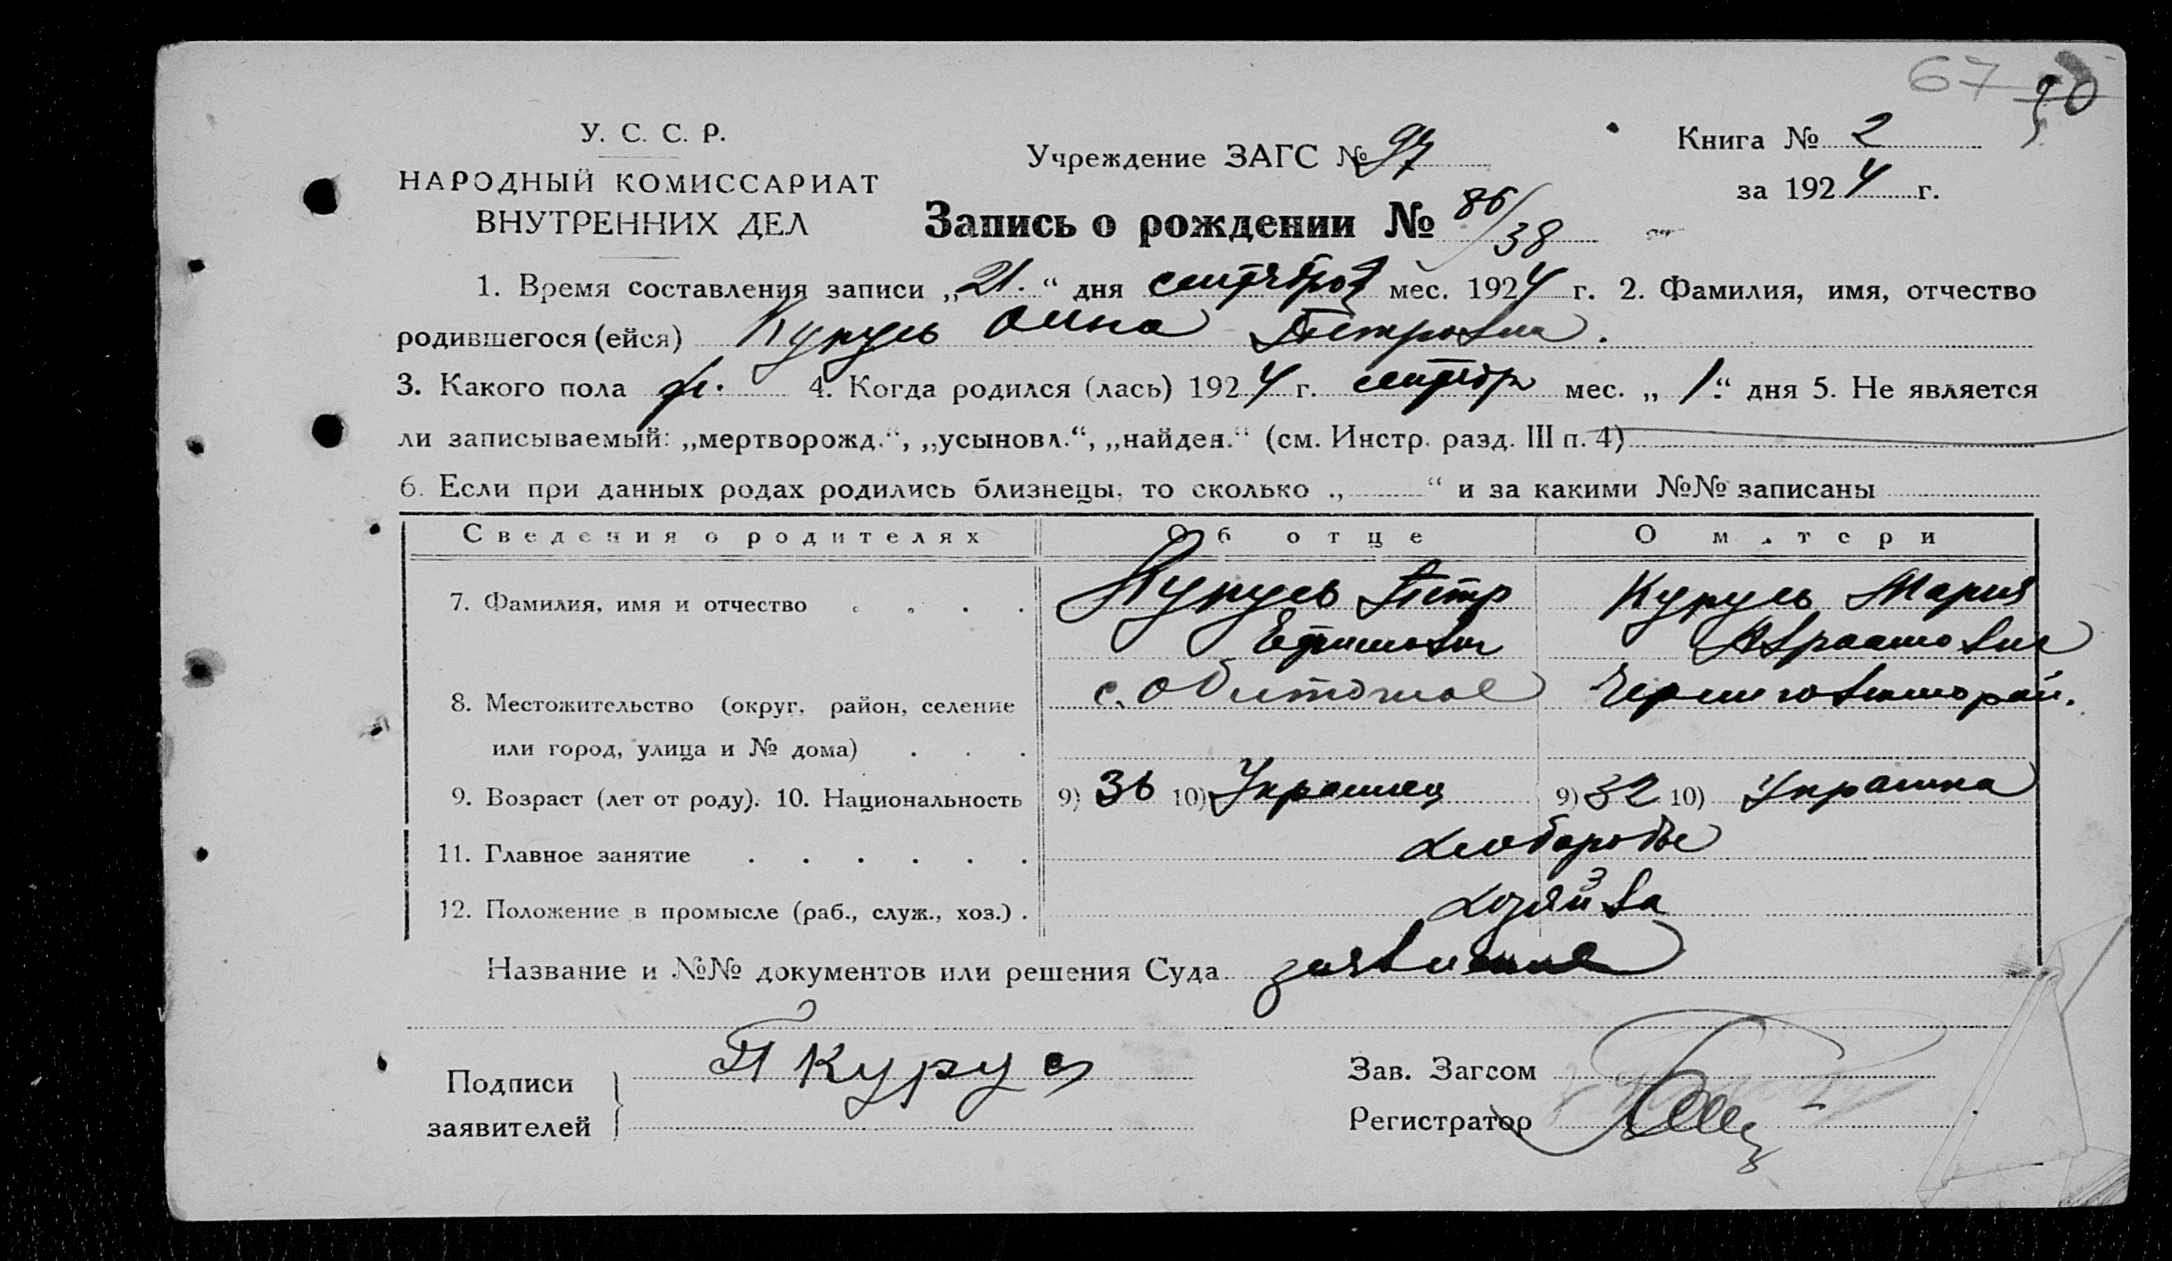 67 90
У. С. С. Р.
НАРОДНЫЙ КОМИССАРИАТ
ВНУТРЕННИХ ДЕЛ
Учреждение ЗАГС № 97
Книга № 2
за 1924 г.
Запись о рождении № 86/38
1. Время составления записи „21.“ дня сентября мес. 1924 г. 2. Фамилия, имя, отчество
родившегося (ейся) Куруль Анна Петровна.
3. Какого пола ж. 4. Когда родился (лась) 1924 г. сентбр мес. „1.“ дня 5. Не является
ли записываемый: „мертворожд.“, „усыновл.“, „найден.“ (см. Инстр. разд. III п. 4)
6. Если при данных родах родились близнецы, то сколько „ “ и за какими №№ записаны
Сведения о родителях Об отце О матери
7. Фамилия, имя и отчество Куруль Петр Куруль Мария
Ефимович Авраамовна
8. Местожительство (округ, район, селение с. Обиточное Черниговского рай.
или город, улица и № дома)
9. Возраст (лет от роду). 10. Национальность 9) 36 10) Украинец 9) 32 10) Украинка
11. Главное занятие хлеборобы
12. Положение в промысле (раб., служ., хоз.) хозяйва
Название и №№ документов или решения Суда заявление
Подписи П Курул
заявителей
Зав. Загсом
Регистратор